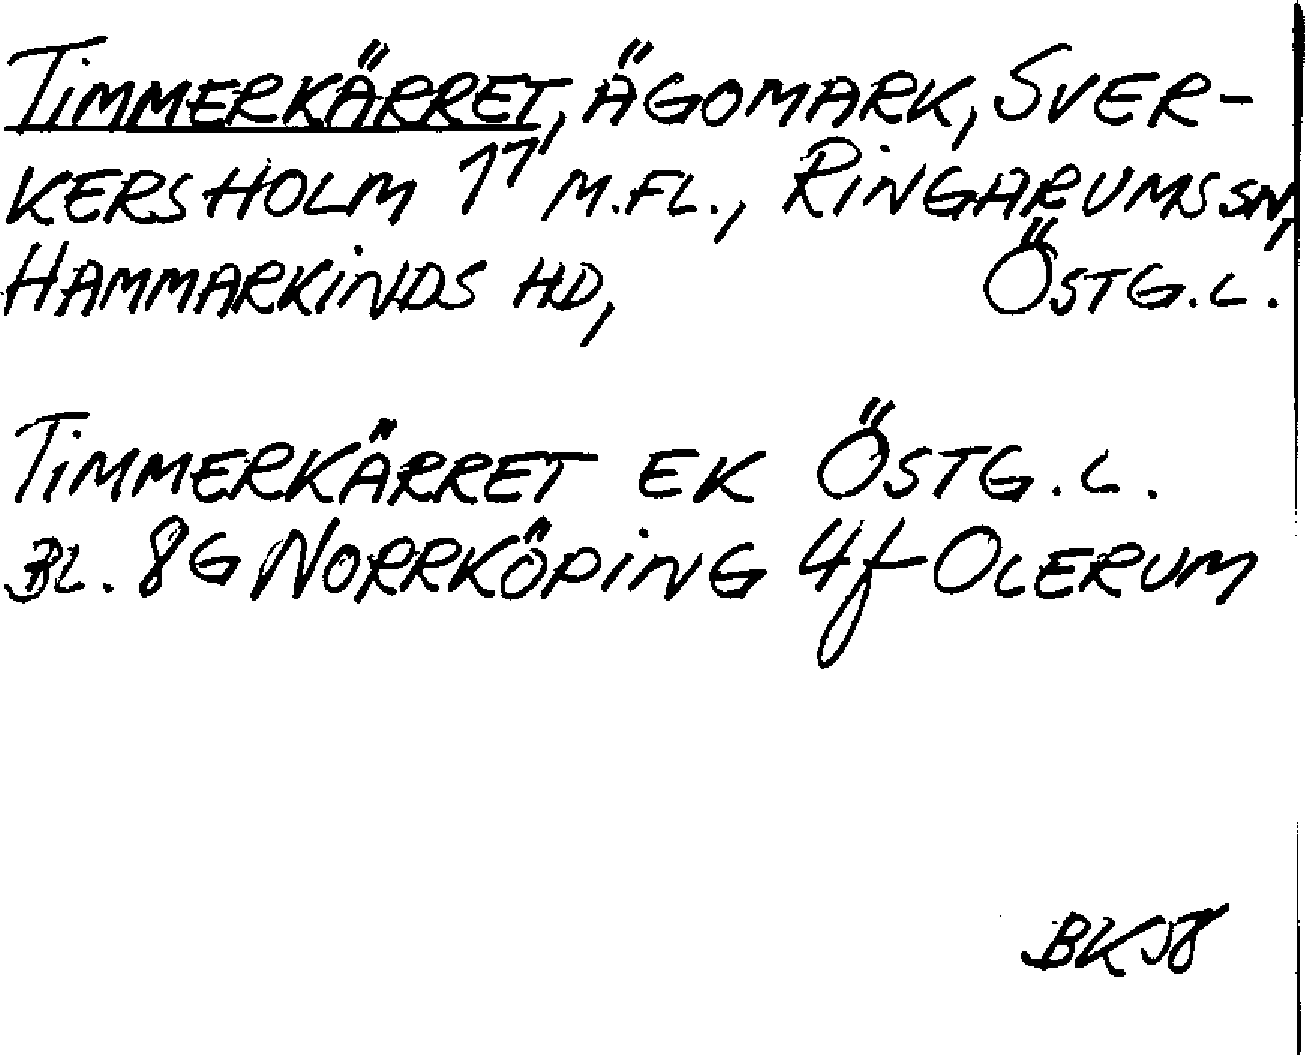 TIMMERKÄRRET, ÄGOMARK, SVER-
KERSHOLM 1¹ M.FL., RINGARUMS SN,
HAMMARKINDS HD, ÖSTG.L.
TIMMERKÄRRET EK ÖSTG.L.
BL. 8G NORRKÖPING 4f OLERUM